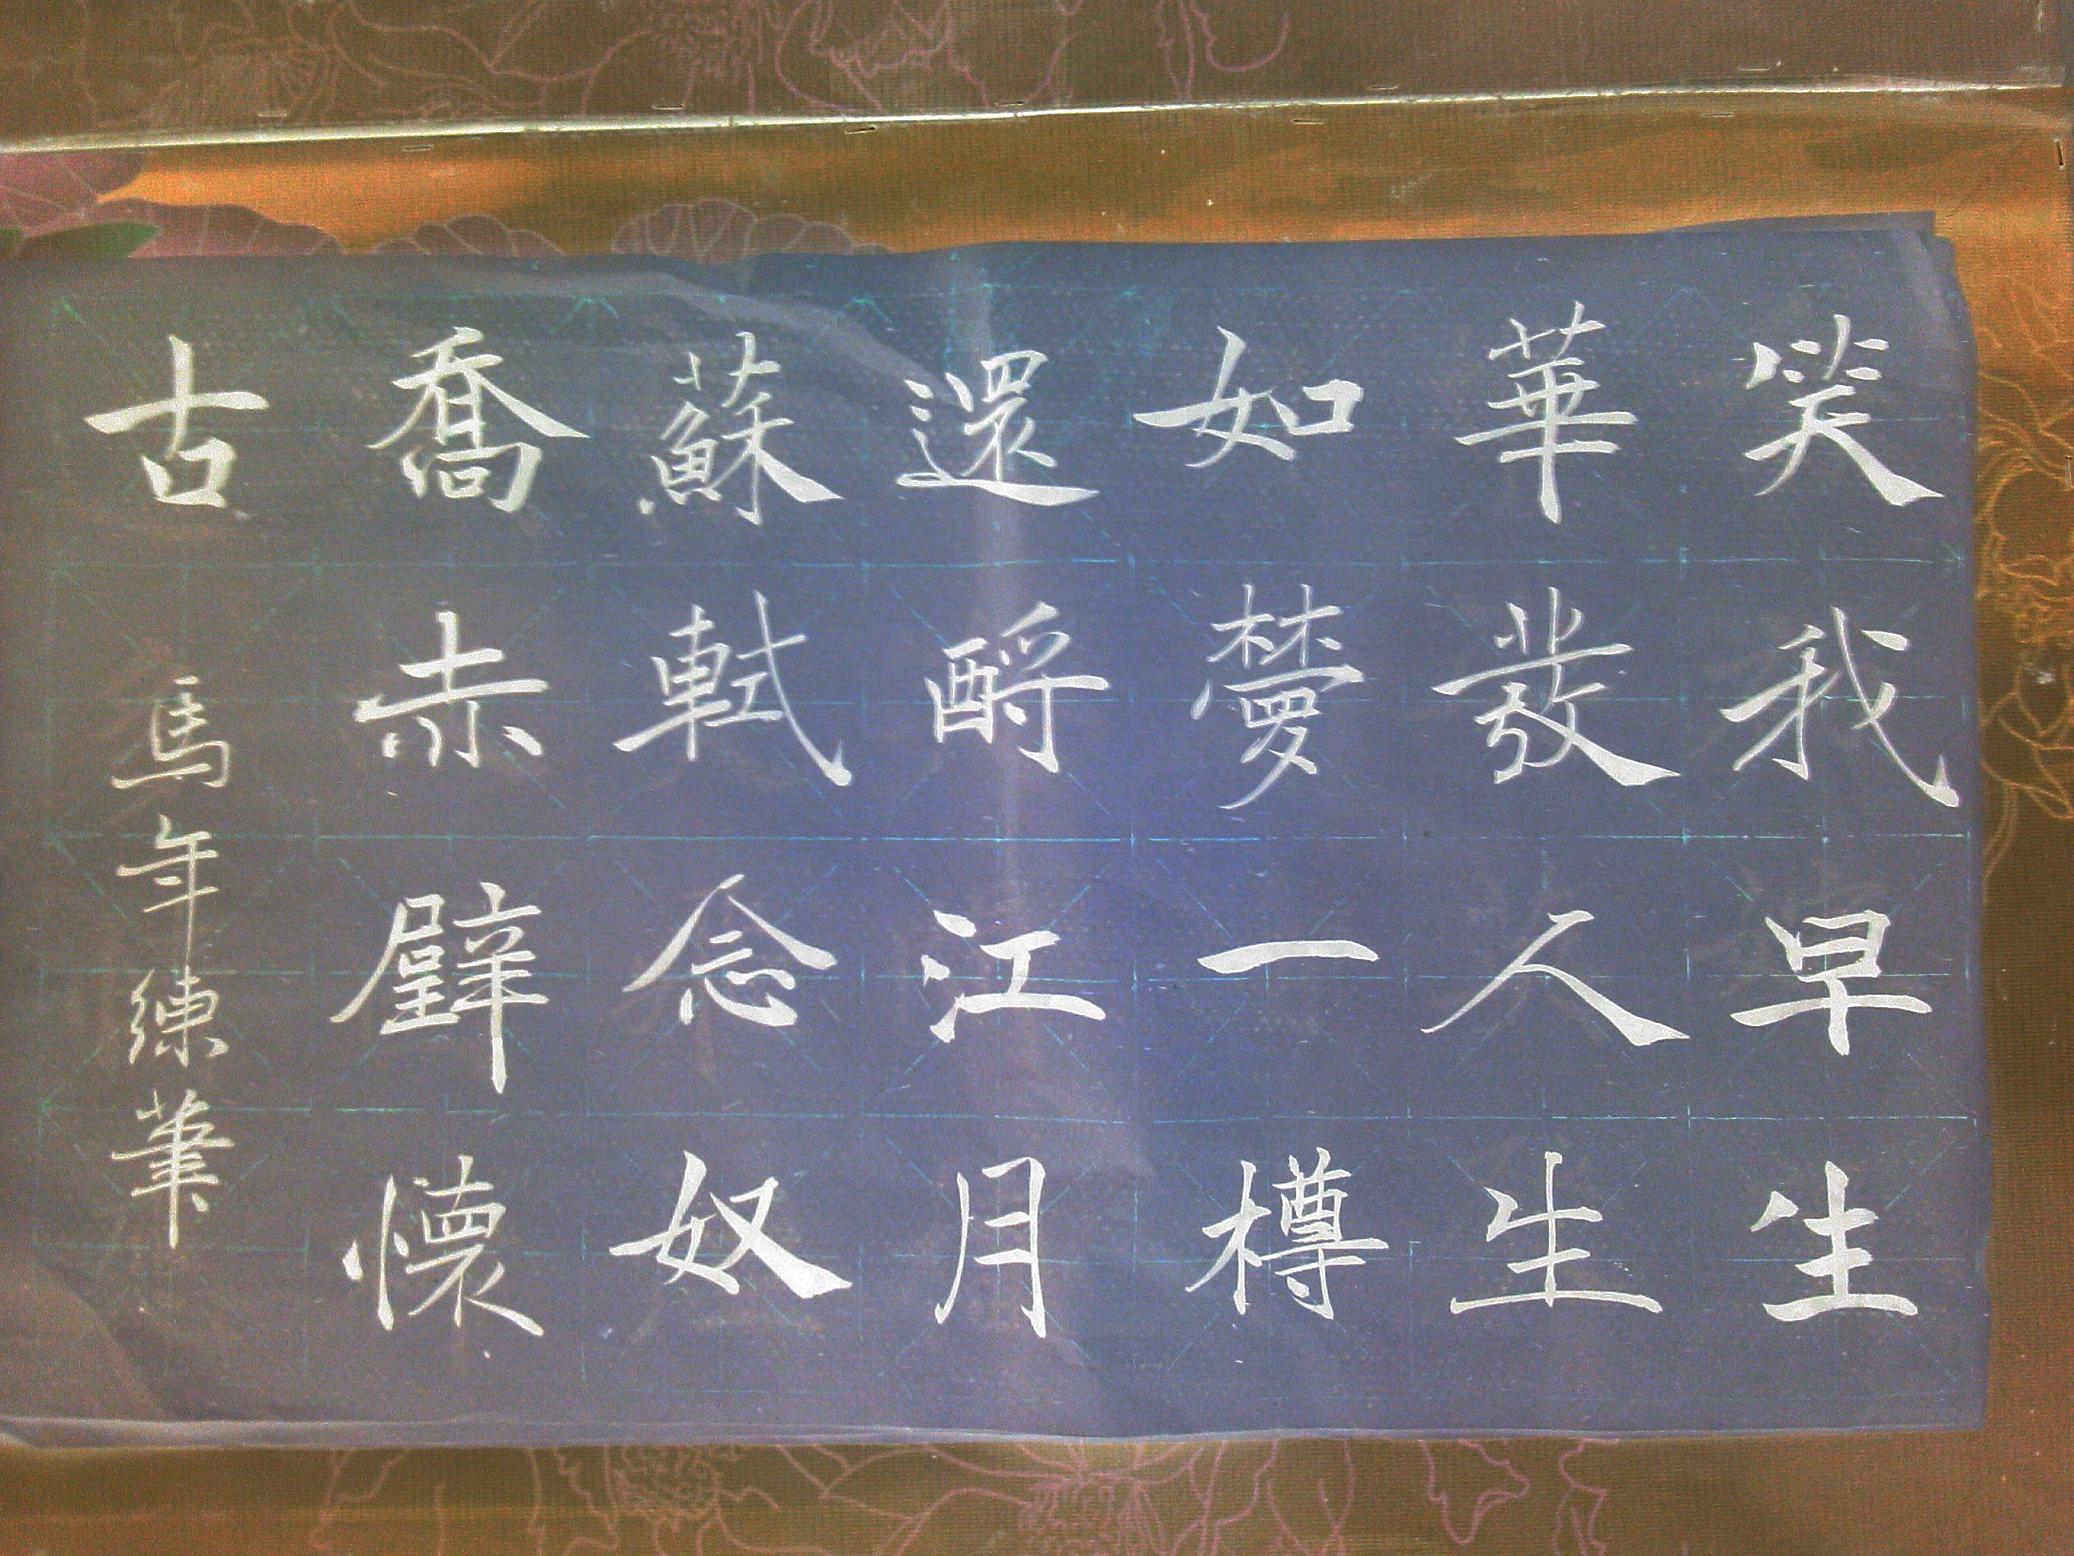 笑我早生
華發人生
如夢一樽
還酹江月
蘇軾念奴
喬赤壁懷
古 馬年練筆